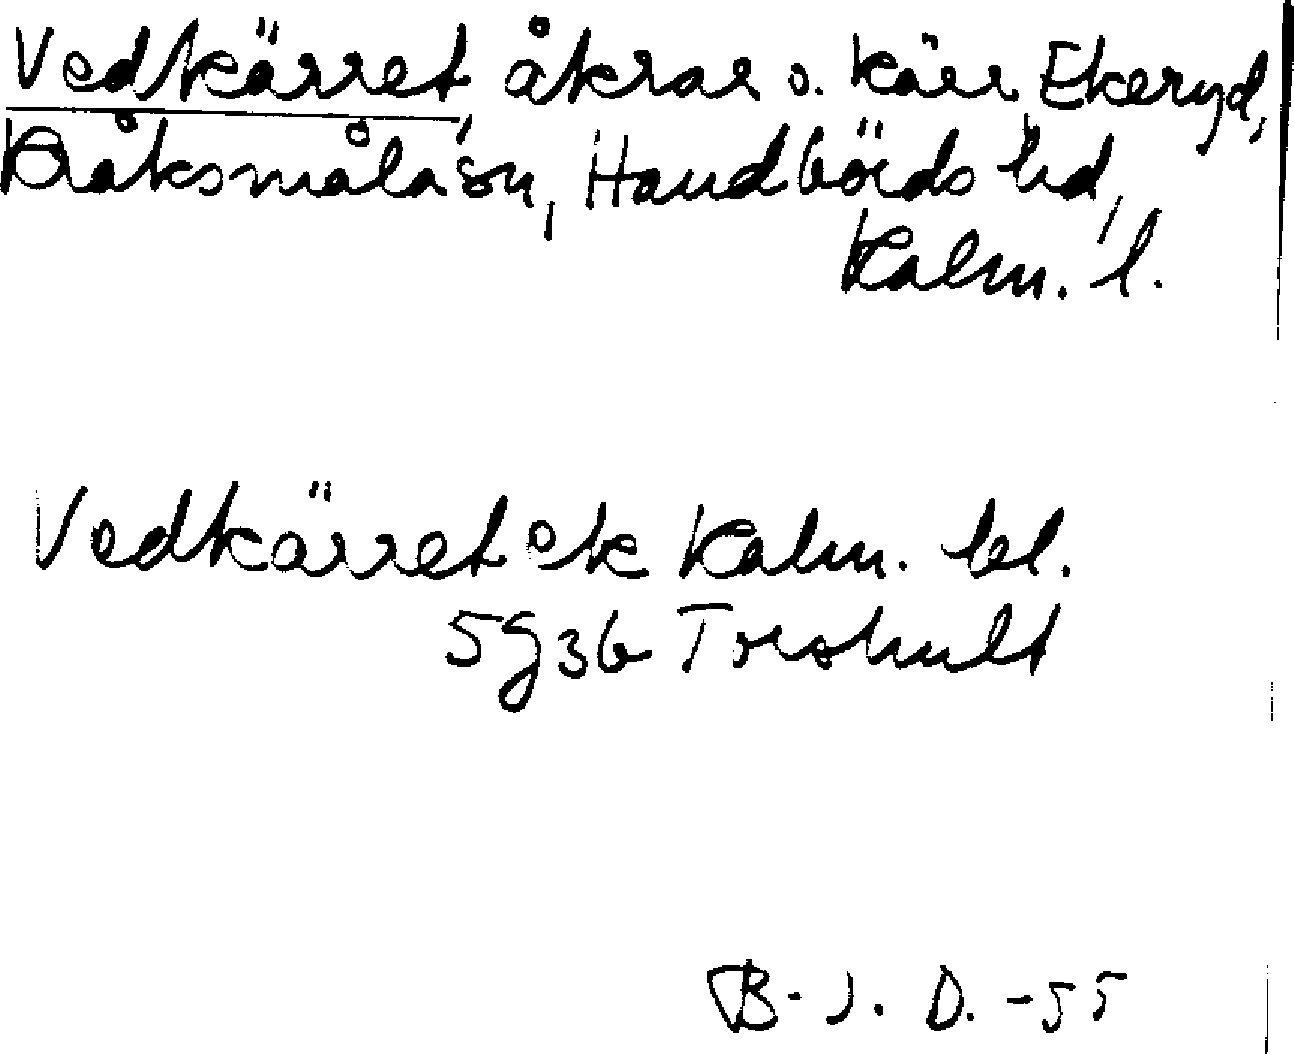 Vedkärret, åkrar o. kärr Ekeryd,
Kråksmåla sn, Handbörds hd,
Kalm. l.
Vedkärret ek Kalm. bl.
5g3b Torshult
B-J. D. -55